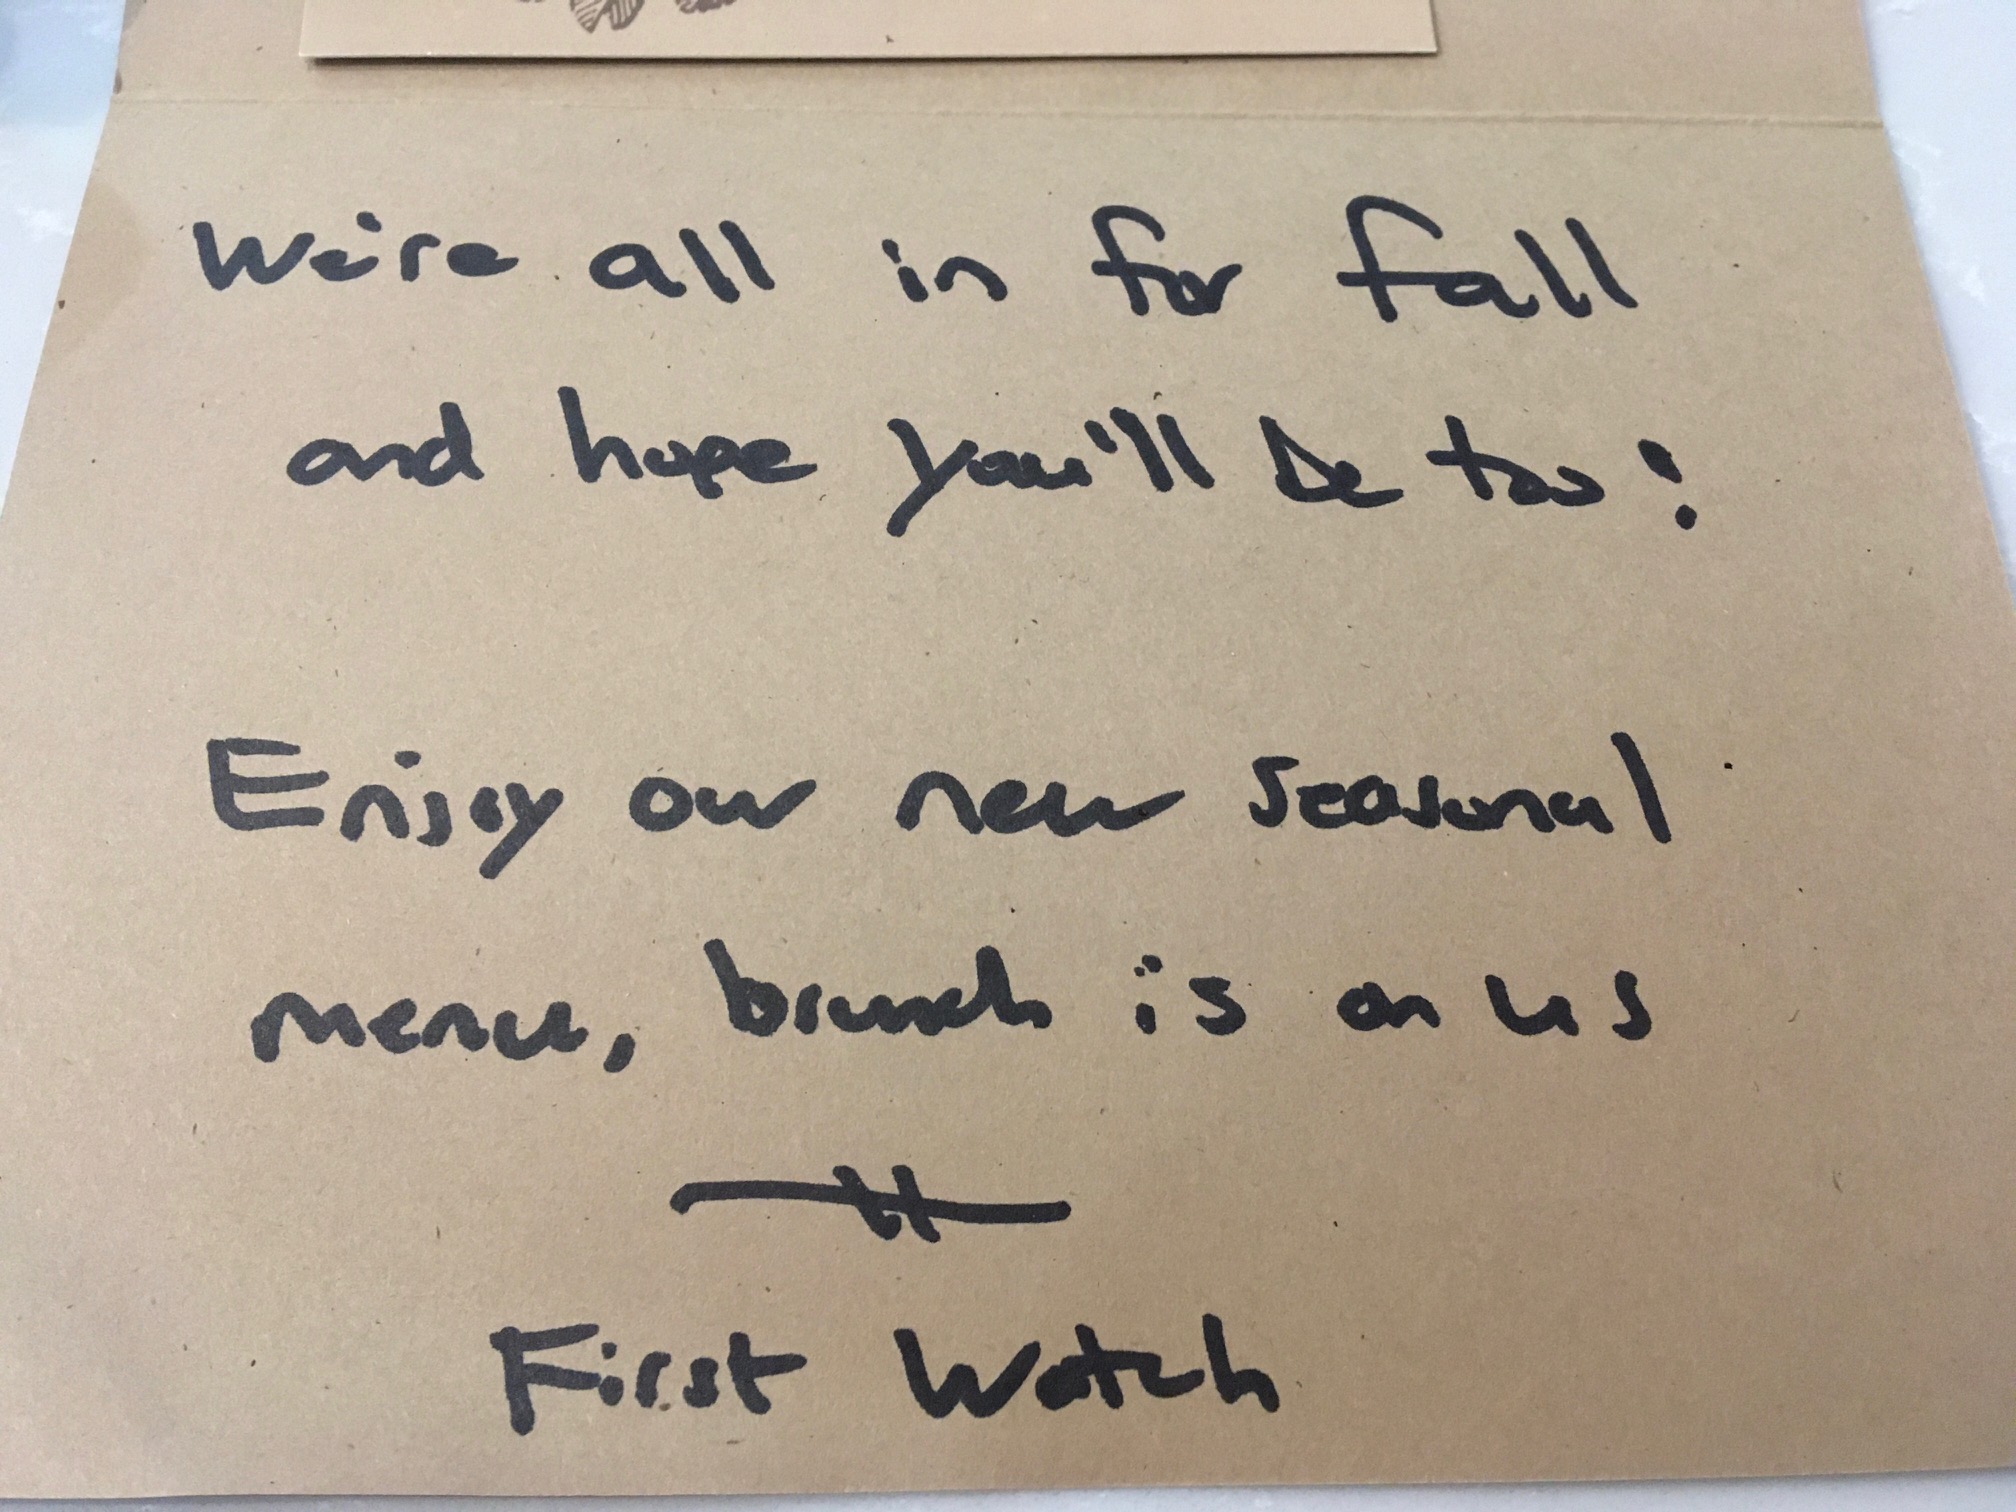 We're all in for fall
and hope you'll be too!
Enjoy our new seasonal
menu, brunch is on us
First Watch